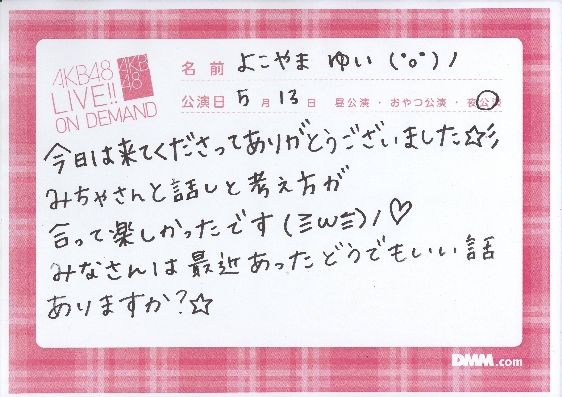 AKB48
LIVE!!
ON DEMAND
AKB
48
名前 よこやま ゆい (°o°)ノ
公演日 5月13日 昼公演・おやつ公演・夜公演
今日は来てくださってありがとうございました☆彡
みちゃさんと話しと考え方が
合って楽しかったです(≧ω≦)ノ♡
みなさんは最近あったどうでもいい話
ありますか?☆
DMM.com